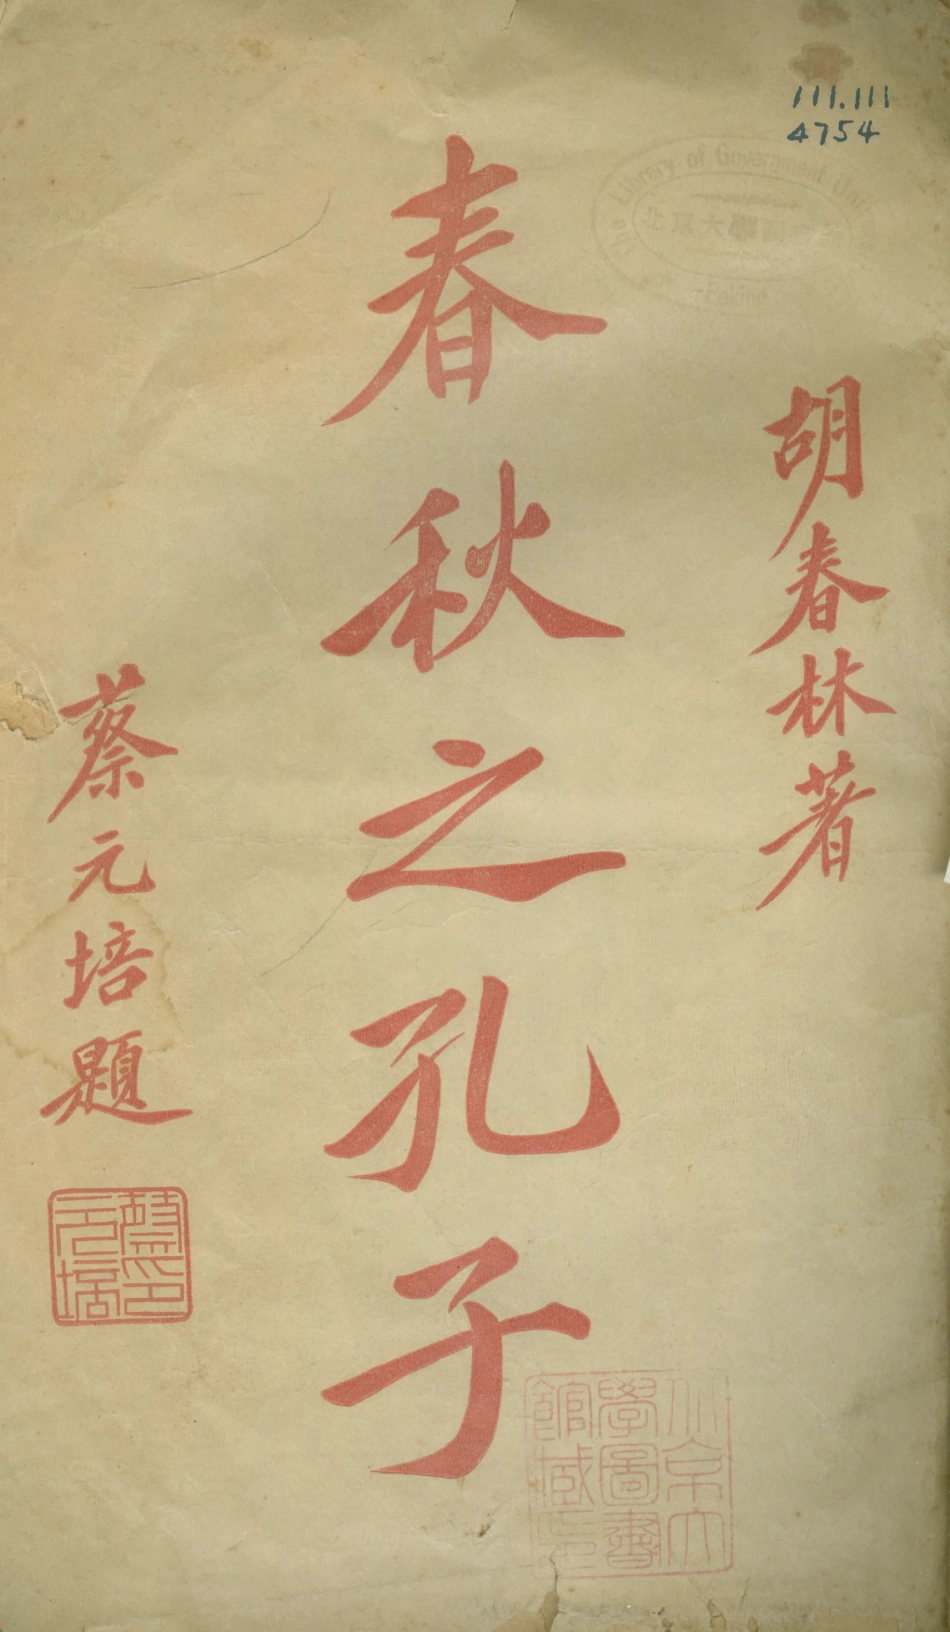 111.111
4754
The Library of Government Uni
北京大學圖
Peking
胡春林著
春秋之孔子
蔡元培題
蔡元培印
北京大學圖書館藏書